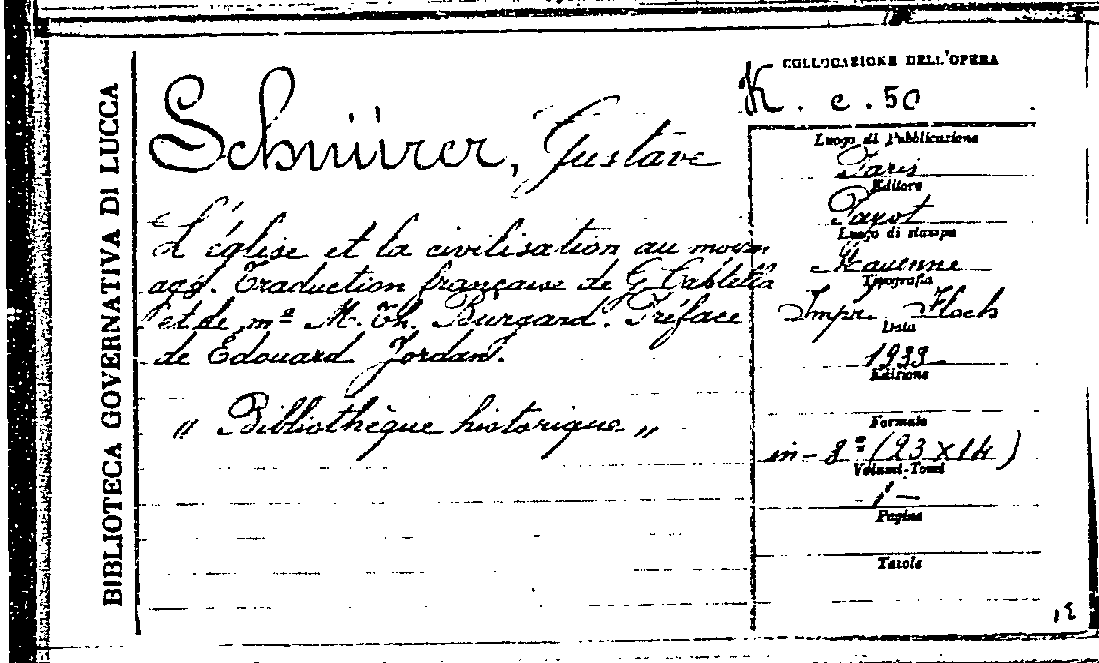 BIBLIOTECA GOVERNATIVA DI LUCCA
Schnürer, Gustave
L'église et la civilisation au moyen
age. Traduction française de G. Castella
et de mᵉ M. Th. Burgard. Préface
de Edouard Jordan.
" Bibliothèque historique "
COLLOCAZIONE DELL'OPERA
K. c. 50
Luogo di Pubblicazione
Paris
Editore
Payot
Luogo di stampa
Mayenne
Tipografia
Impr. Floch
Data
1933
Edizione
Formato
in-8º (23 x 14)
Volumi-Tomi
1 -
Pagine
Tavole